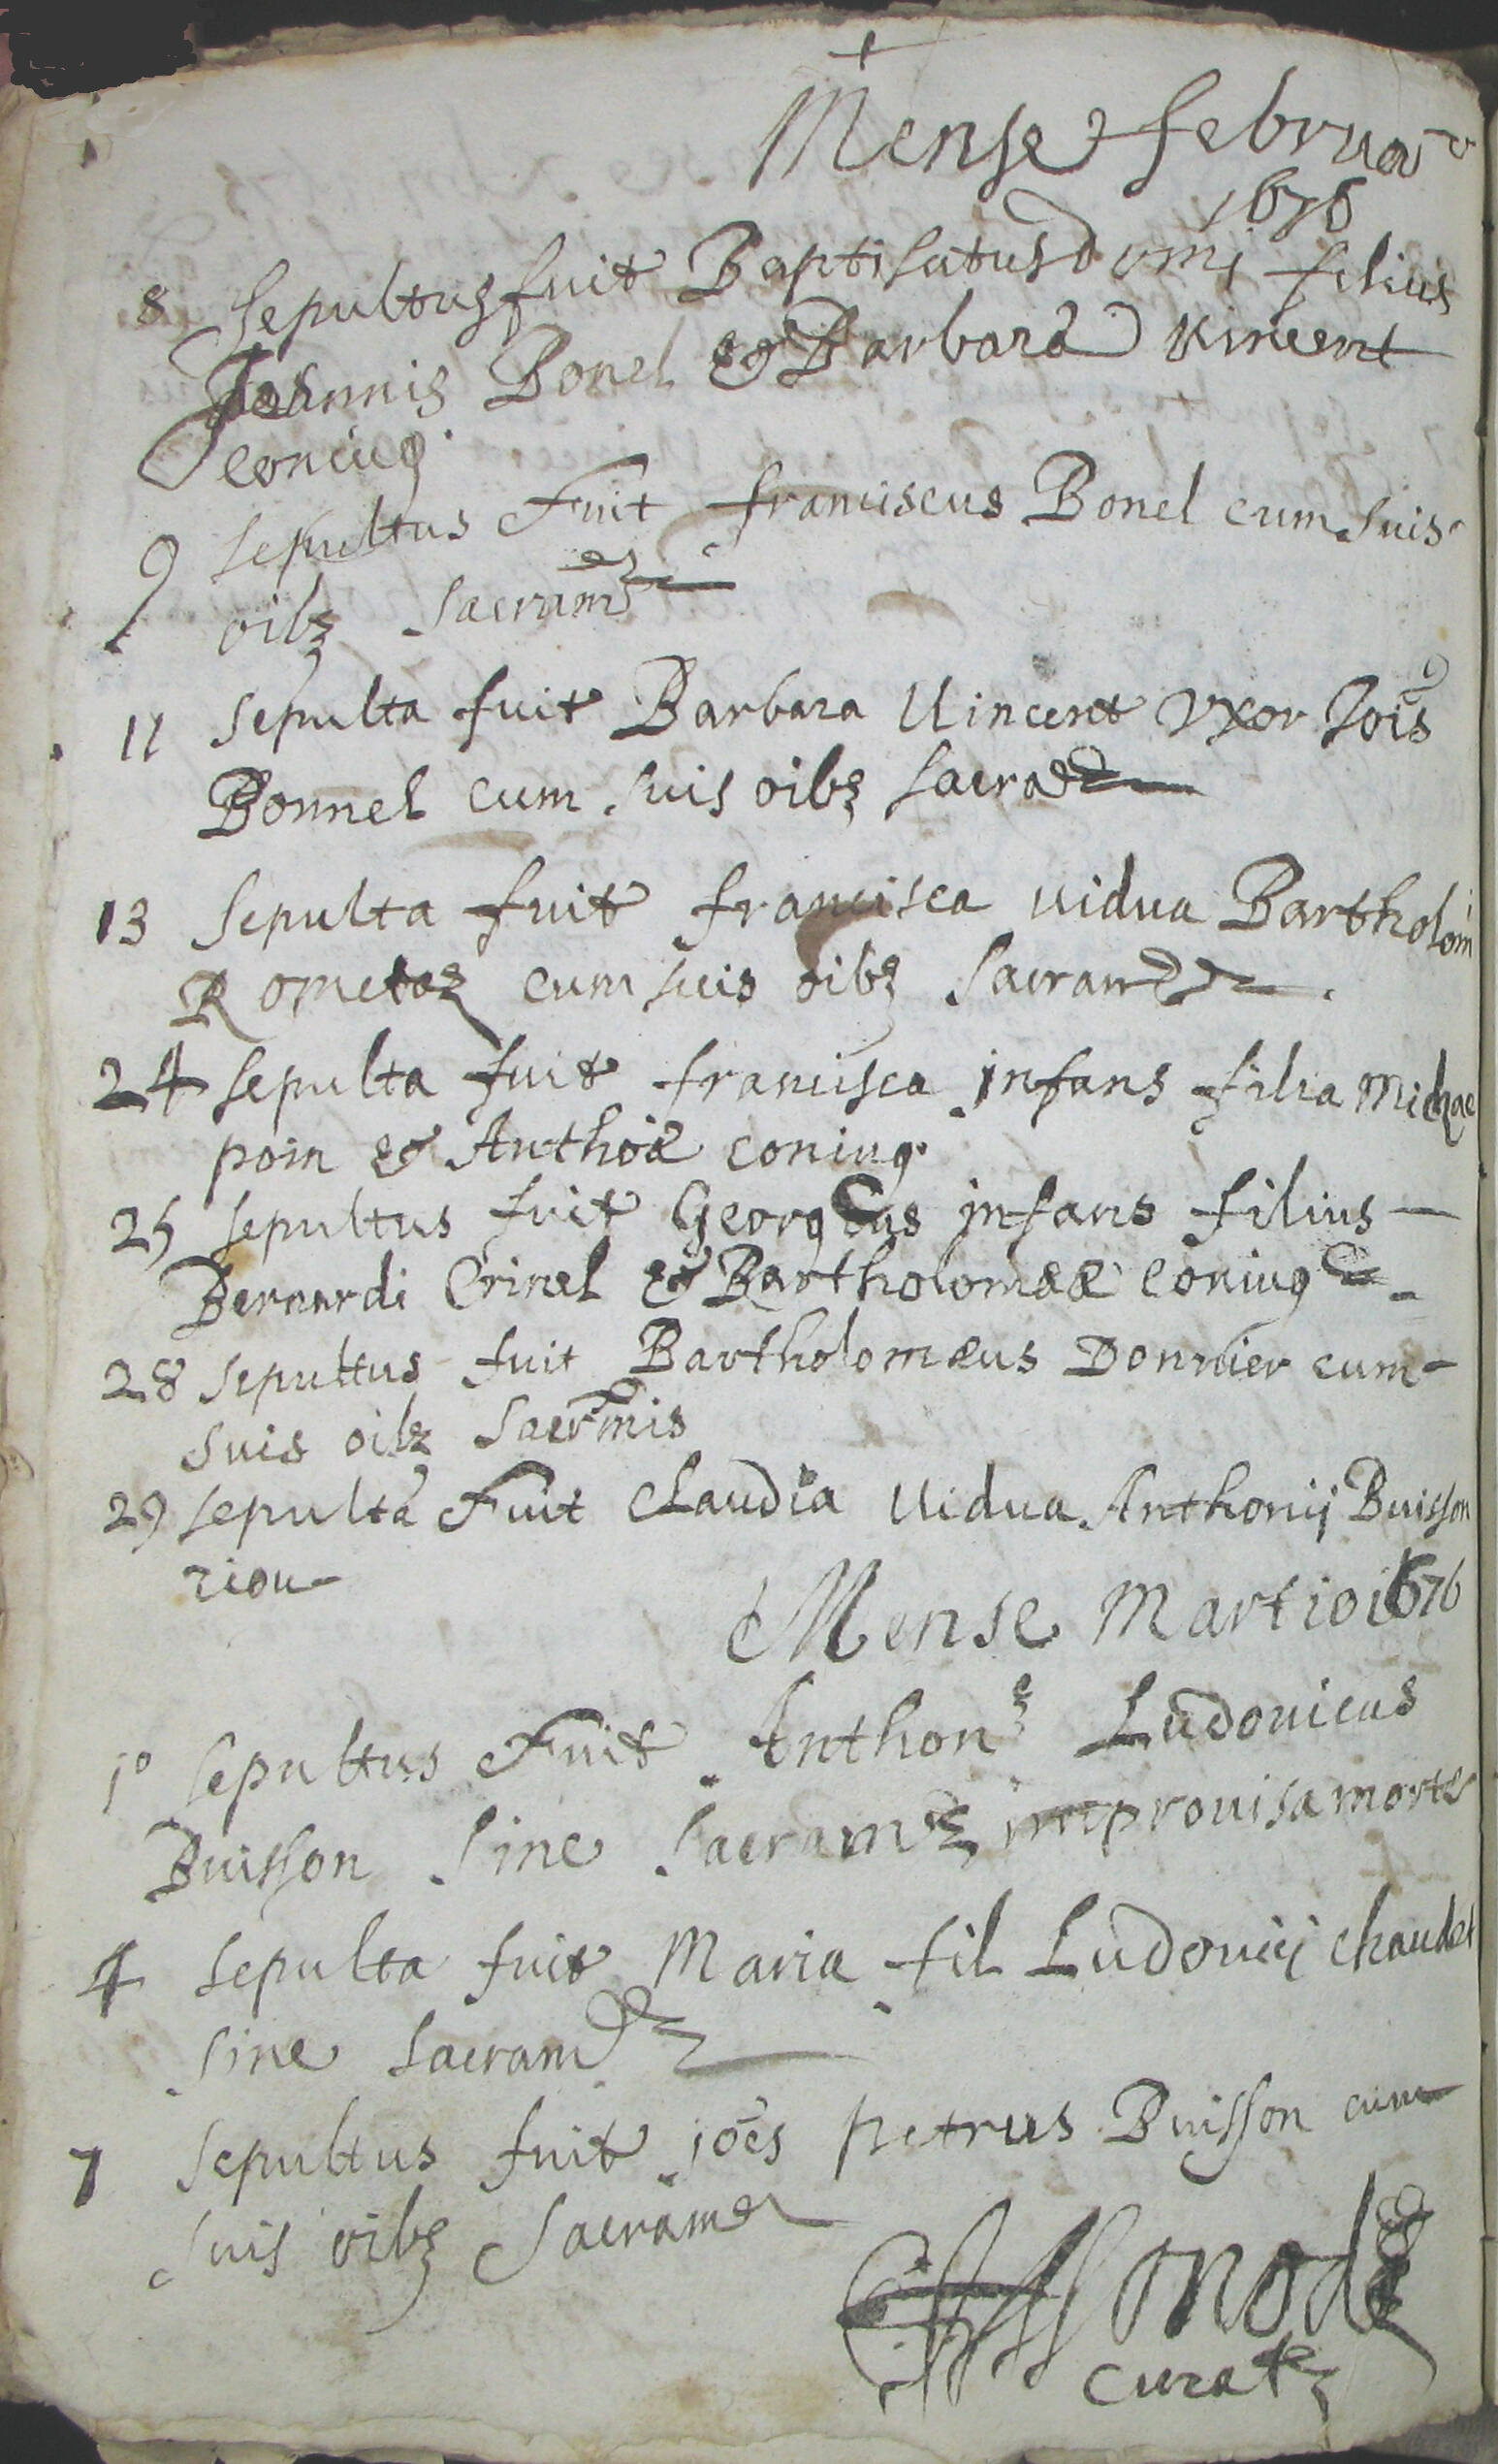 +
Mense februar
1676
8 Sepultus fuit Baptisatus domi filius
Joannis Bonel & Barbara Vincent
coniug
9 sepultus Fuit franciscus Bonel cum suis
oibz sacram
11 Sepulta fuit Barbara Vincent vxor Jois
Bonnel cum suis oibz sacra
13 Sepulta fuit francisca uidua Bartholom
cum suis oibz Sacram
24 sepulta fuit francisca infans filia michae
poin & Anthoae coniug
25 sepultus fuit Georgius infans filius
Bernardi Crinel & Bartholomeae coniug
28 sepultus fuit Bartholomeus Donnier cum
suis oibz Sacrmis
29 sepulta Fuit Claudia Uidua Anthonij Buisson
riou
Mense Martio 1676
1º sepultus Fuit Anthon Ludouicus
Buisson Sine Sacram improuisa morte
4 sepulta fuit Maria fil Ludouici chaudet
sine Sacram
7 sepultus fuit joes petrus Buisson cum
suis oibz Sacram
curat